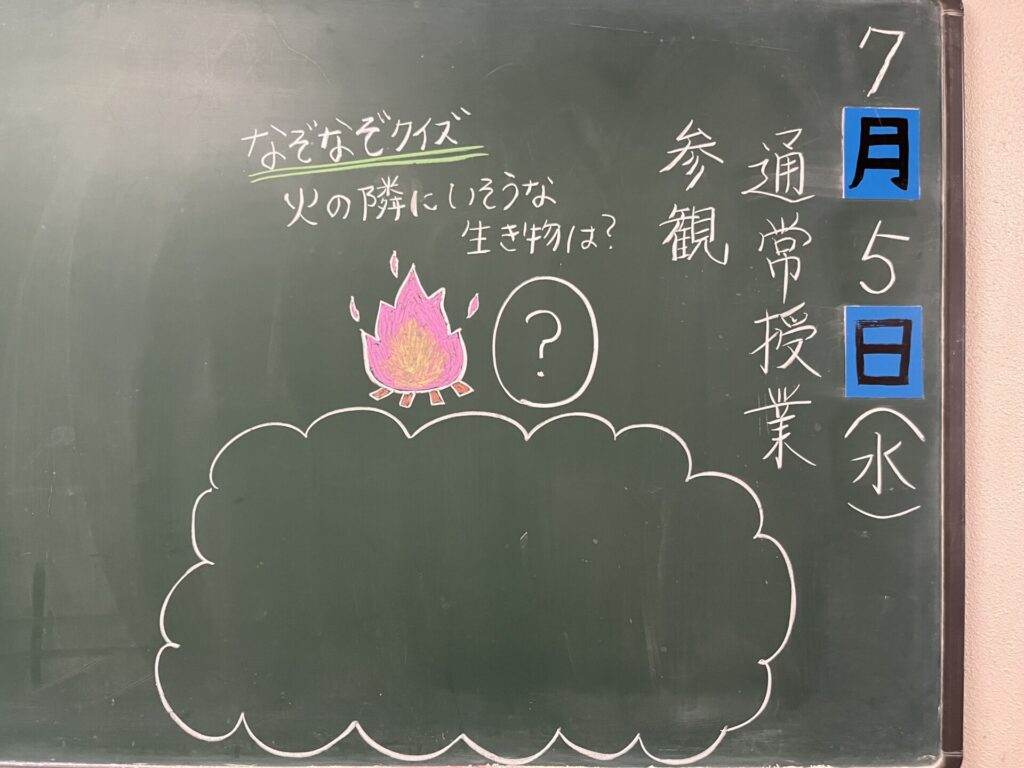 7月5日(水)
通常授業
参観
なぞなぞクイズ
火の隣にいそうな
生き物は?
?